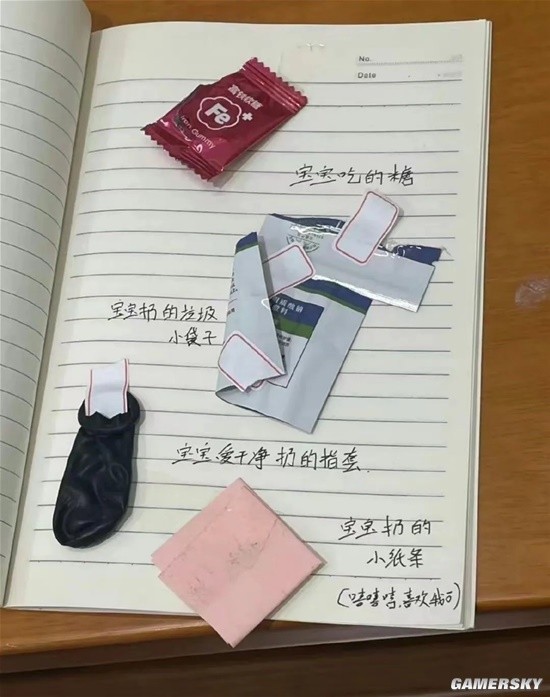 No.
Date
富铁软糖
Fe+
Iron Gummy
宝宝吃的糖
宝宝扔的垃圾
小袋子
宝宝爱干净扔的指套
宝宝扔的
小纸条
(嘻嘻嘻,喜欢我?)
GAMERSKY